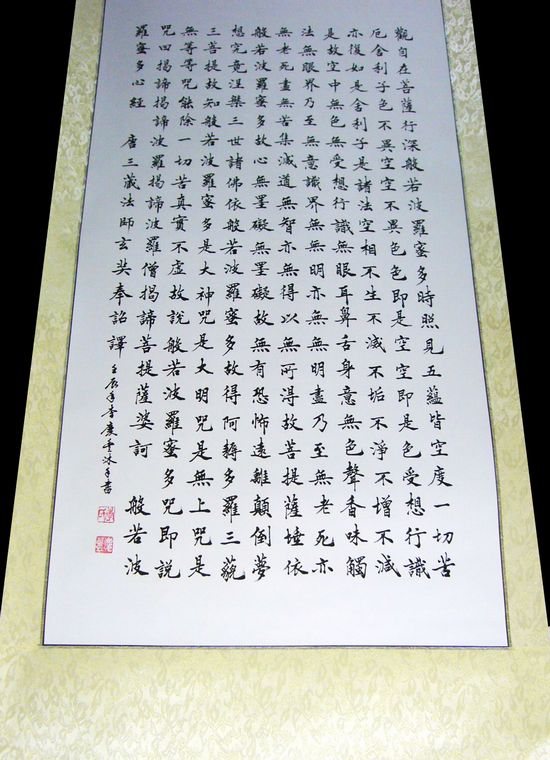 觀自在菩薩行深般若波羅蜜多時照見五蘊皆空度一切苦
厄舍利子色不異空空不異色色即是空空即是色受想行識
亦復如是舍利子是諸法空相不生不滅不垢不淨不增不減
是故空中無色無受想行識無眼耳鼻舌身意無色聲香味觸
法無眼界乃至無意識界無無明亦無無明盡乃至無老死亦
無老死盡無苦集滅道無智亦無得以無所得故菩提薩埵依
般若波羅蜜多故心無罣礙無罣礙故無有恐怖遠離顛倒夢
想究竟涅槃三世諸佛依般若波羅蜜多故得阿耨多羅三藐
三菩提故知般若波羅蜜多是大神咒是大明咒是無上咒是
無等等咒能除一切苦真實不虛故說般若波羅蜜多咒即說
咒曰揭諦揭諦波羅揭諦波羅僧揭諦菩提薩婆訶 般若波
羅蜜多心經 唐三藏法師玄奘奉詔譯 壬辰年春 沐手書